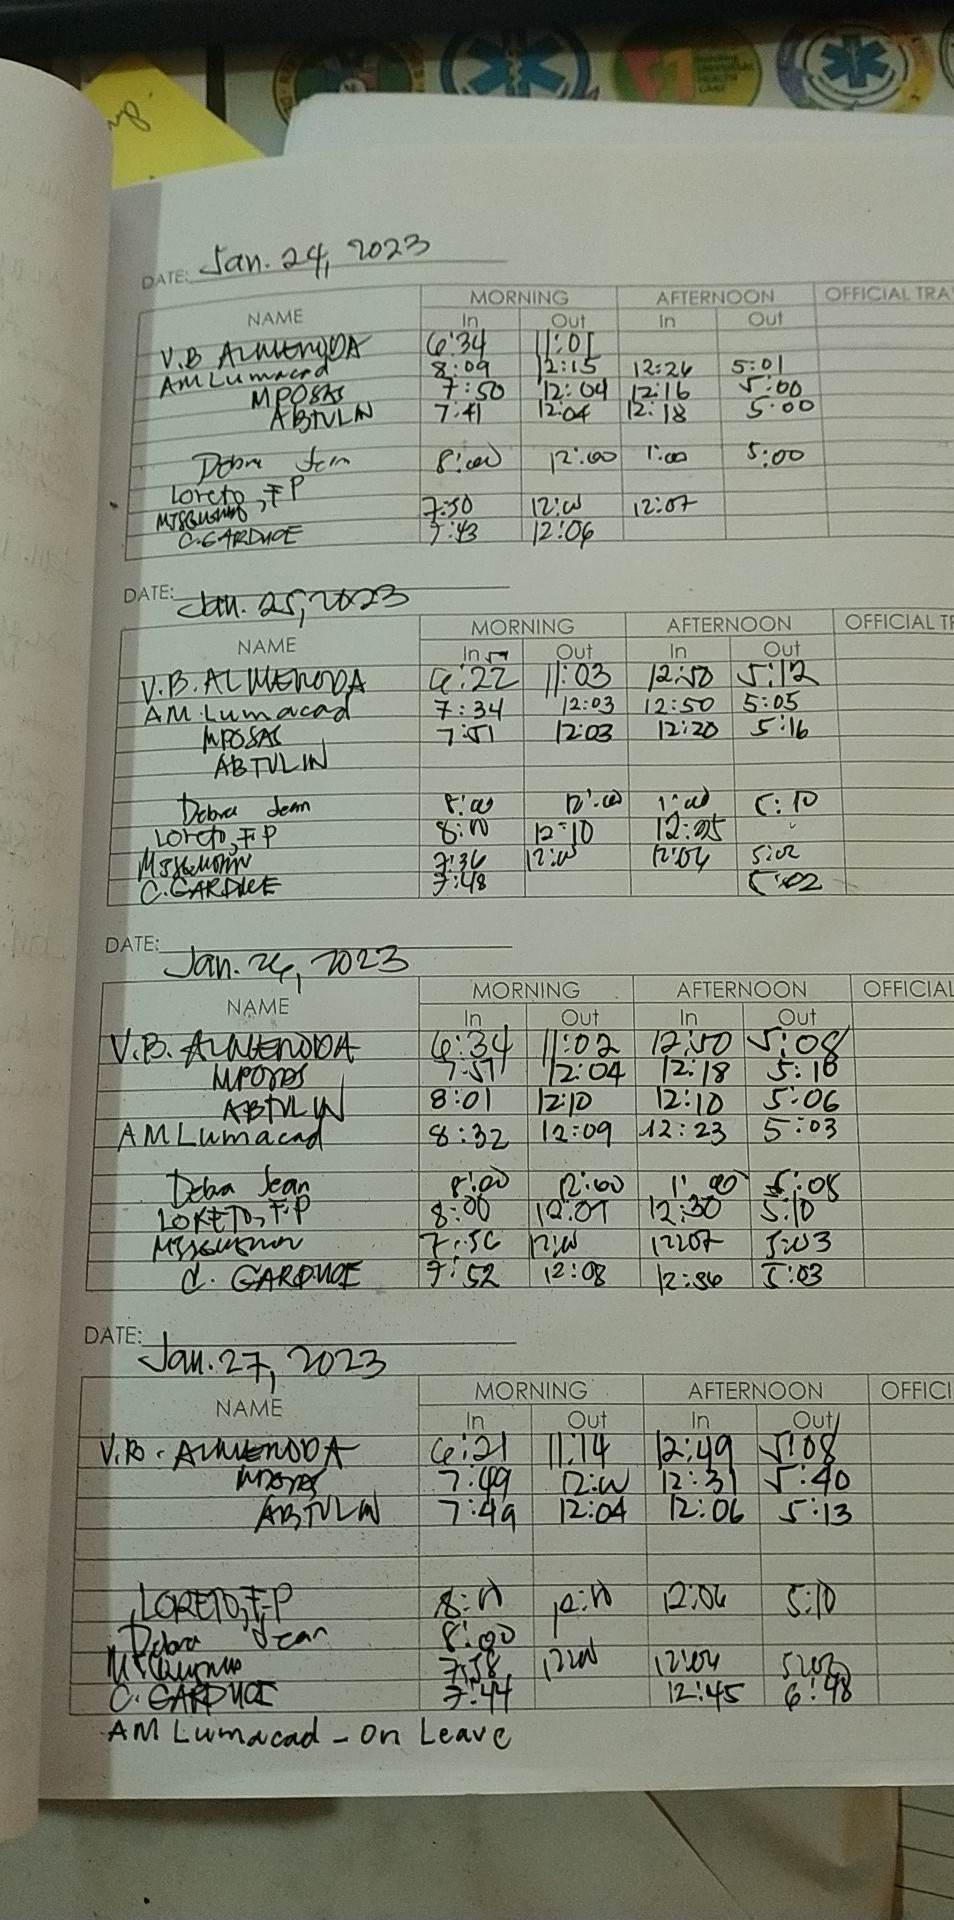 DATE: Jan. 24, 2023
NAME MORNING AFTERNOON OFFICIAL TRA
In Out In Out
V.B ALMENODA 6:34 11:01
AM Lumacad 8:09 12:15 12:26 5:01
MPOSAS 7:50 12:04 12:16 5:00
ABTULIN 7:41 12:04 12:18 5:00
Debra Jean 8:00 12:00 1:00 5:00
Loreto, FP
7:50 12:00 12:07
C. GARDUCE 7:43 12:06
DATE: Jan. 25, 2023
NAME MORNING AFTERNOON OFFICIAL TR
In Out In Out
V.B. ALMENODA 6:22 11:03 12:50 5:12
AM Lumacad 7:34 12:03 12:50 5:05
MPOSAS 7:51 12:03 12:20 5:16
ABTULIN
Debra Jean 8:00 12:00 1:00 5:10
Loreto, FP 8:00 12:10 12:25
7:36 12:00 12:04 5:02
C. GARDUCE 7:48 5:02
DATE: Jan. 26, 2023
NAME MORNING AFTERNOON OFFICIAL
In Out In Out
V.B. ALMENODA 6:34 11:02 12:50 5:08
MPOSAS 7:51 12:04 12:18 5:10
ABTULIN 8:01 12:10 12:10 5:06
AM Lumacad 8:32 12:09 12:23 5:03
Debra Jean 8:00 12:00 1:00 5:05
LORETO, FP 8:00 12:01 12:30 5:10
7:56 12:00 12:07 5:03
C. GARDUCE 7:52 12:08 12:56 5:03
DATE: Jan. 27, 2023
NAME MORNING AFTERNOON OFFICI
In Out In Out
V.B. ALMENODA 6:21 11:14 12:49 5:08
MPOSAS 7:49 12:00 12:31 5:40
ABTULIN 7:49 12:04 12:06 5:13
LORETO, FP 8:00 12:00 12:06 5:10
Debra Jean 8:00
7:58 12:00 12:04 5:02
C. GARDUCE 7:44 12:45 6:48
AM Lumacad - on Leave